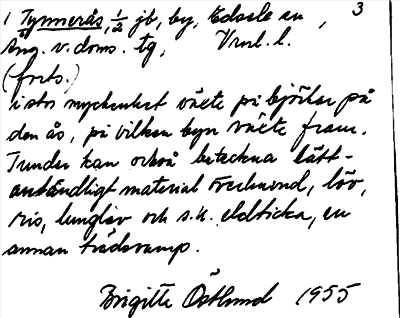 1 Tynnerås, 1/2 jb, by, Edsele sn, 3
Ång. v. doms. tg, Vnrl. l.
(forts.)
i stor myckenhet växte på björkar på
den ås, på vilken byn växte fram.
Tunder kan också beteckna lätt-
antändligt material Fredmund, löv,
ris, lunglav och s.k. eldticka, en
annan trädsvamp.
Brigitte Östlund 1955